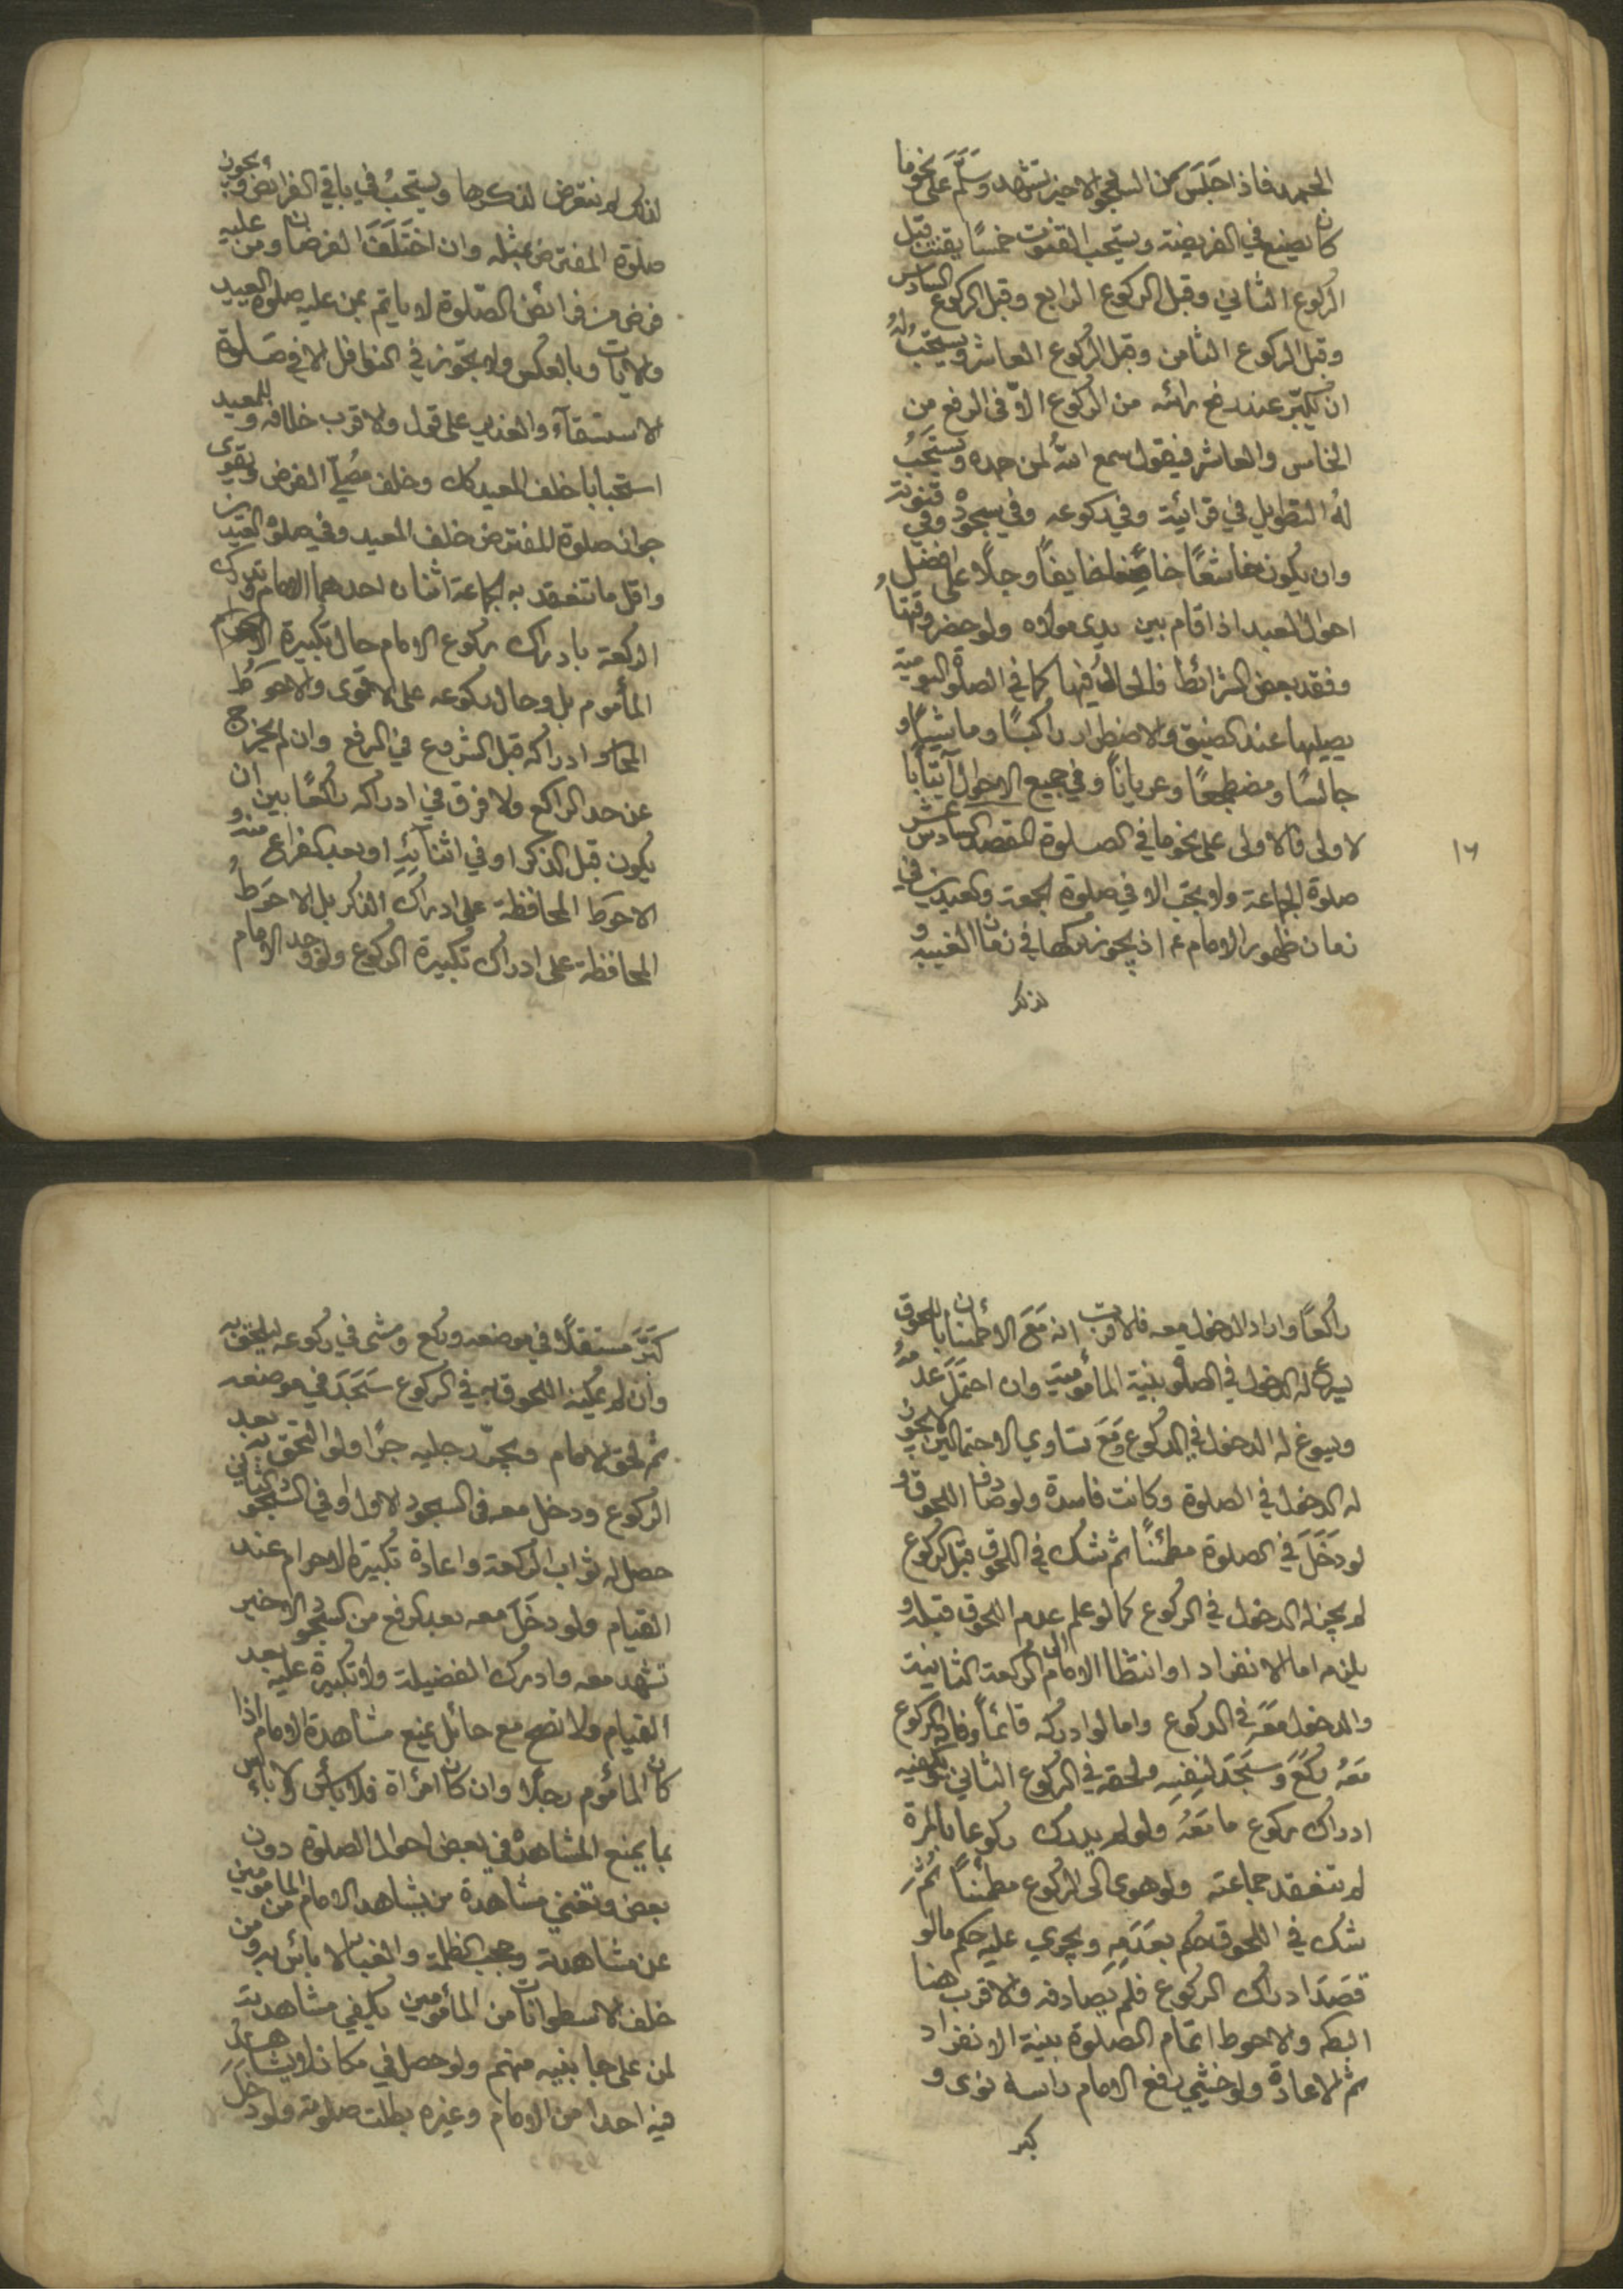 الحمد فاذا جَلَسَ من السجود الاخير تشهد وسَلَّمَ على نحو ما
كان يصنع في الفريضة ويستحب القنوت خمسًا يقنت قبل
الركوع الثاني وقبل الركوع الرابع وقبل الركوع السادس
وقبل الركوع الثامن وقبل الركوع العاشر ويستحبُ لهُ
ان يكبّر عند رفع رائه من الركوع الّا في الرفع من
الخامس والعاشر فيقول سمع اللهُ لمن حمده ويستحبُ
لهُ التطويل في قرائية وفي ركوعه وفي سجوده وفي قنوته
وان يكون خاشعًا خايفًا وجلًا على افضل
احوال العبد اذا قام بين يدي مولاه ولو حضر وقتها و
فقد بعض الشرائط فالحالُ فيها كما في الصلوة اليومية
يصليها عند الضيق والاضطرار راكبًا وماشيًا و
جالسًا ومضطجعًا وعريانًا وفي جميع الاحوال
لاولى فالاولى على نحو ما في الصلوة المقصد السادس عشر
صلوة الجماعة ولا يجب الا في صلوة الجمعة والعيدين في
زمان ظهور الامام ع اذ يجوز تركها في زمان الغيبه و
لذكر
١٦
لذلك لم نتعرض لذكرها ويستحبُ في باقي الفرائض ويجوز
صلوة المفترض بمثله وان اختَلَفَا الفرضان ومن عليه
فرض من فرائض الصّلوة لا ياتم بمن عليه صلوة العيد
والايات وبالعكس ولا يجوز في النوافل الا في صَلوة
الاستسقآء والغدير على قول والاقرب خلافه و للمعيد
استحبابا خلف المعيد كك وخلف مصلّي الفرض ويقوى
جواز صلوة المفترض خلف المعيد وفي صلوة العيدين
واقل ما تنعقد به الجماعة اثنان احدهما الامام وتدرك
الركعة بادراك ركوع الامام حال تكبيرة الاحرام
المأموم بل وحال ركوعه على الاقوى والاحوطُ
ادراكه قبل الشروع في الرفع وان لم يخرج
عن حد الراكع ولا فرق في ادراكه راكعًا بين ان
يكون قبل الذكر او في اثنآئِهِ او بعد الفراغ منه و
الاحوط المحافظة على ادراك الذكر بل الاحوطُ
المحافظة على ادراك تكبيرة الركوع ولو وجد الامام
راكعًا واراد الدخول معه فالاقرب انه مَعَ الاطمئنان باللحوق
يسوغ له الدخول في الصلوة بنية المأمومية وان احتَمَلَ عدمهُ
ويسوغ له الدخول في الركوع ومَعَ تساوي الاحتمالين لا يجوز
له الدخول في الصلوة وكانت فاسدة ولو صادف اللحوق و
لو دَخَلَ في الصلوة مطمئنًا ثم شك في اللحوق قبل الركوع
لم يجز له الدخول في الركوع كما لو علم عدم اللحوق قبله و
يلزمه اما الانفراد او انتظار الامام الى الركعة الثانية
والدخول مَعَهُ في الركوع واما لو ادركه قائمًا وفاته الركوع
معَهُ ركَعَ وسَجَدَ لنفسِهِ ولحقه في الركوع الثاني ويكفيه
ادراك ركوع ما مَعَهُ ولو لم يدرك ركوعا بالمرة
لم تنعقد جماعته ولو هوى الى الركوع مطمئنًا ثُمَّ
شك في اللحوق حكم بعَدَمِهِ ويجري عليه حكم ما لو
قصَدَ ادراك الركوع فلم يصادفه والاقرب هنا
البطه والاحوط اتمام الصلوة بنية الانفراد
ثم الاعادة ولو خشي رفع الامام راسه نوى و
كبر
كَبَّرَ مستقلًا في موضعه وركع ومشى في ركوعه ليلحق به
وان لم يمكنه اللحوق به في الركوع سَجَدَ في موضعه
ثم لحق الامام ويجرّ رجليه جرًا ولو التحق به بعد
الركوع ودخل معه في السجود الاول او في السجود الثاني
حصل له ثواب الركعة واعادة تكبيرة الاحرام عند
القيام ولو دخَلَ معه بعد الرفع من السجود الاخير
تشهد معه وادرك الفضيلة ولا تكبيرة عليه بعد
القيام ولا تصح مع حائل يمنع مشاهدة الامام اذا
كان المأموم رجلًا وان كان امرأة فلا بأس ولا باس
بما يمنع المشاهدة في بعض احوال الصلوة دون
بعض وتغني مشاهدة من يشاهد الامام من المامومين
عن مشاهدته وحجب الظلمة والغبار لا باس به ومن
خلف الاسطوانات من المأمومين يكفي مشاهدته
لمن على جانبيه منهم ولو حصل في مكان لا يشاهدُ
فيه احدا من الامام وغيره بطلت صلوته ولو دخَلَ